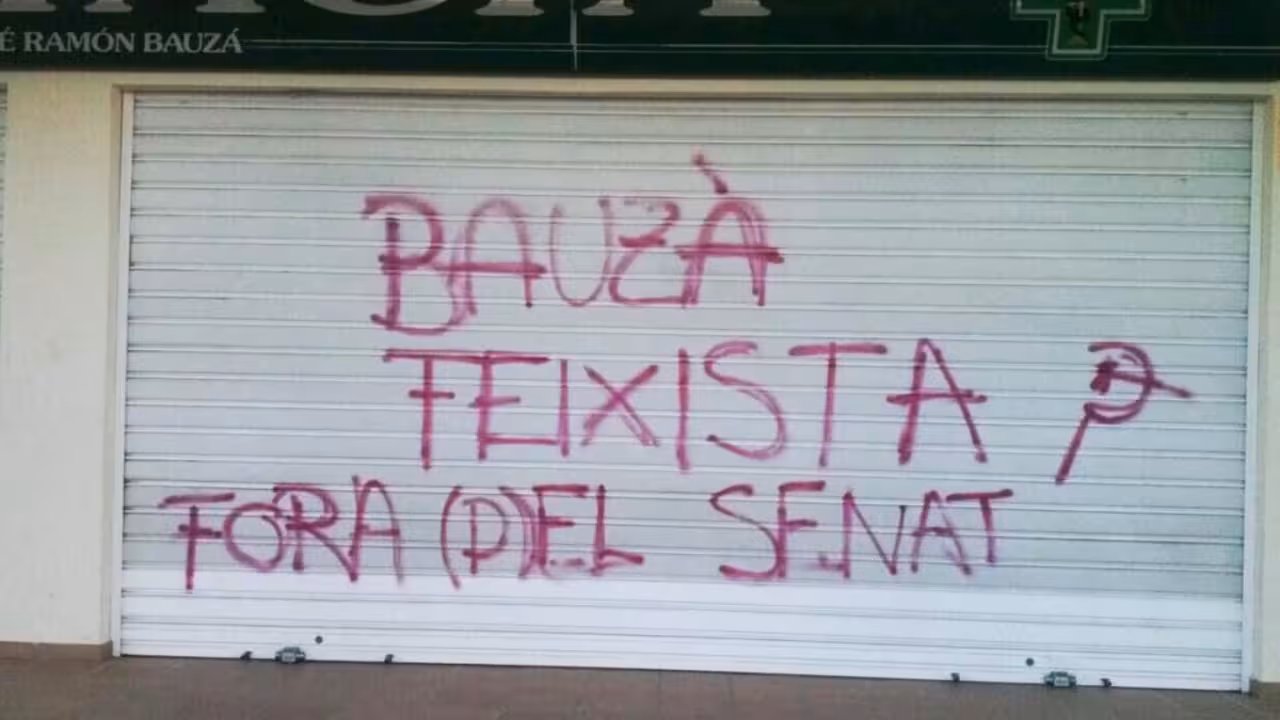 É RAMÓN BAUZÁ
BAUZÀ
FEIXISTA
FORA (D)EL SENAT